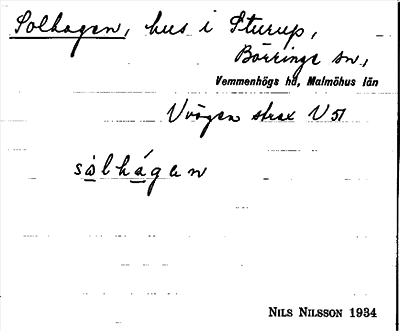 Solhagen, hus i Sturup,
Börringe sn,
Vemmenhögs hd, Malmöhus län
Vvägen strax V 51
sòlhágen
NILS NILSSON 1934